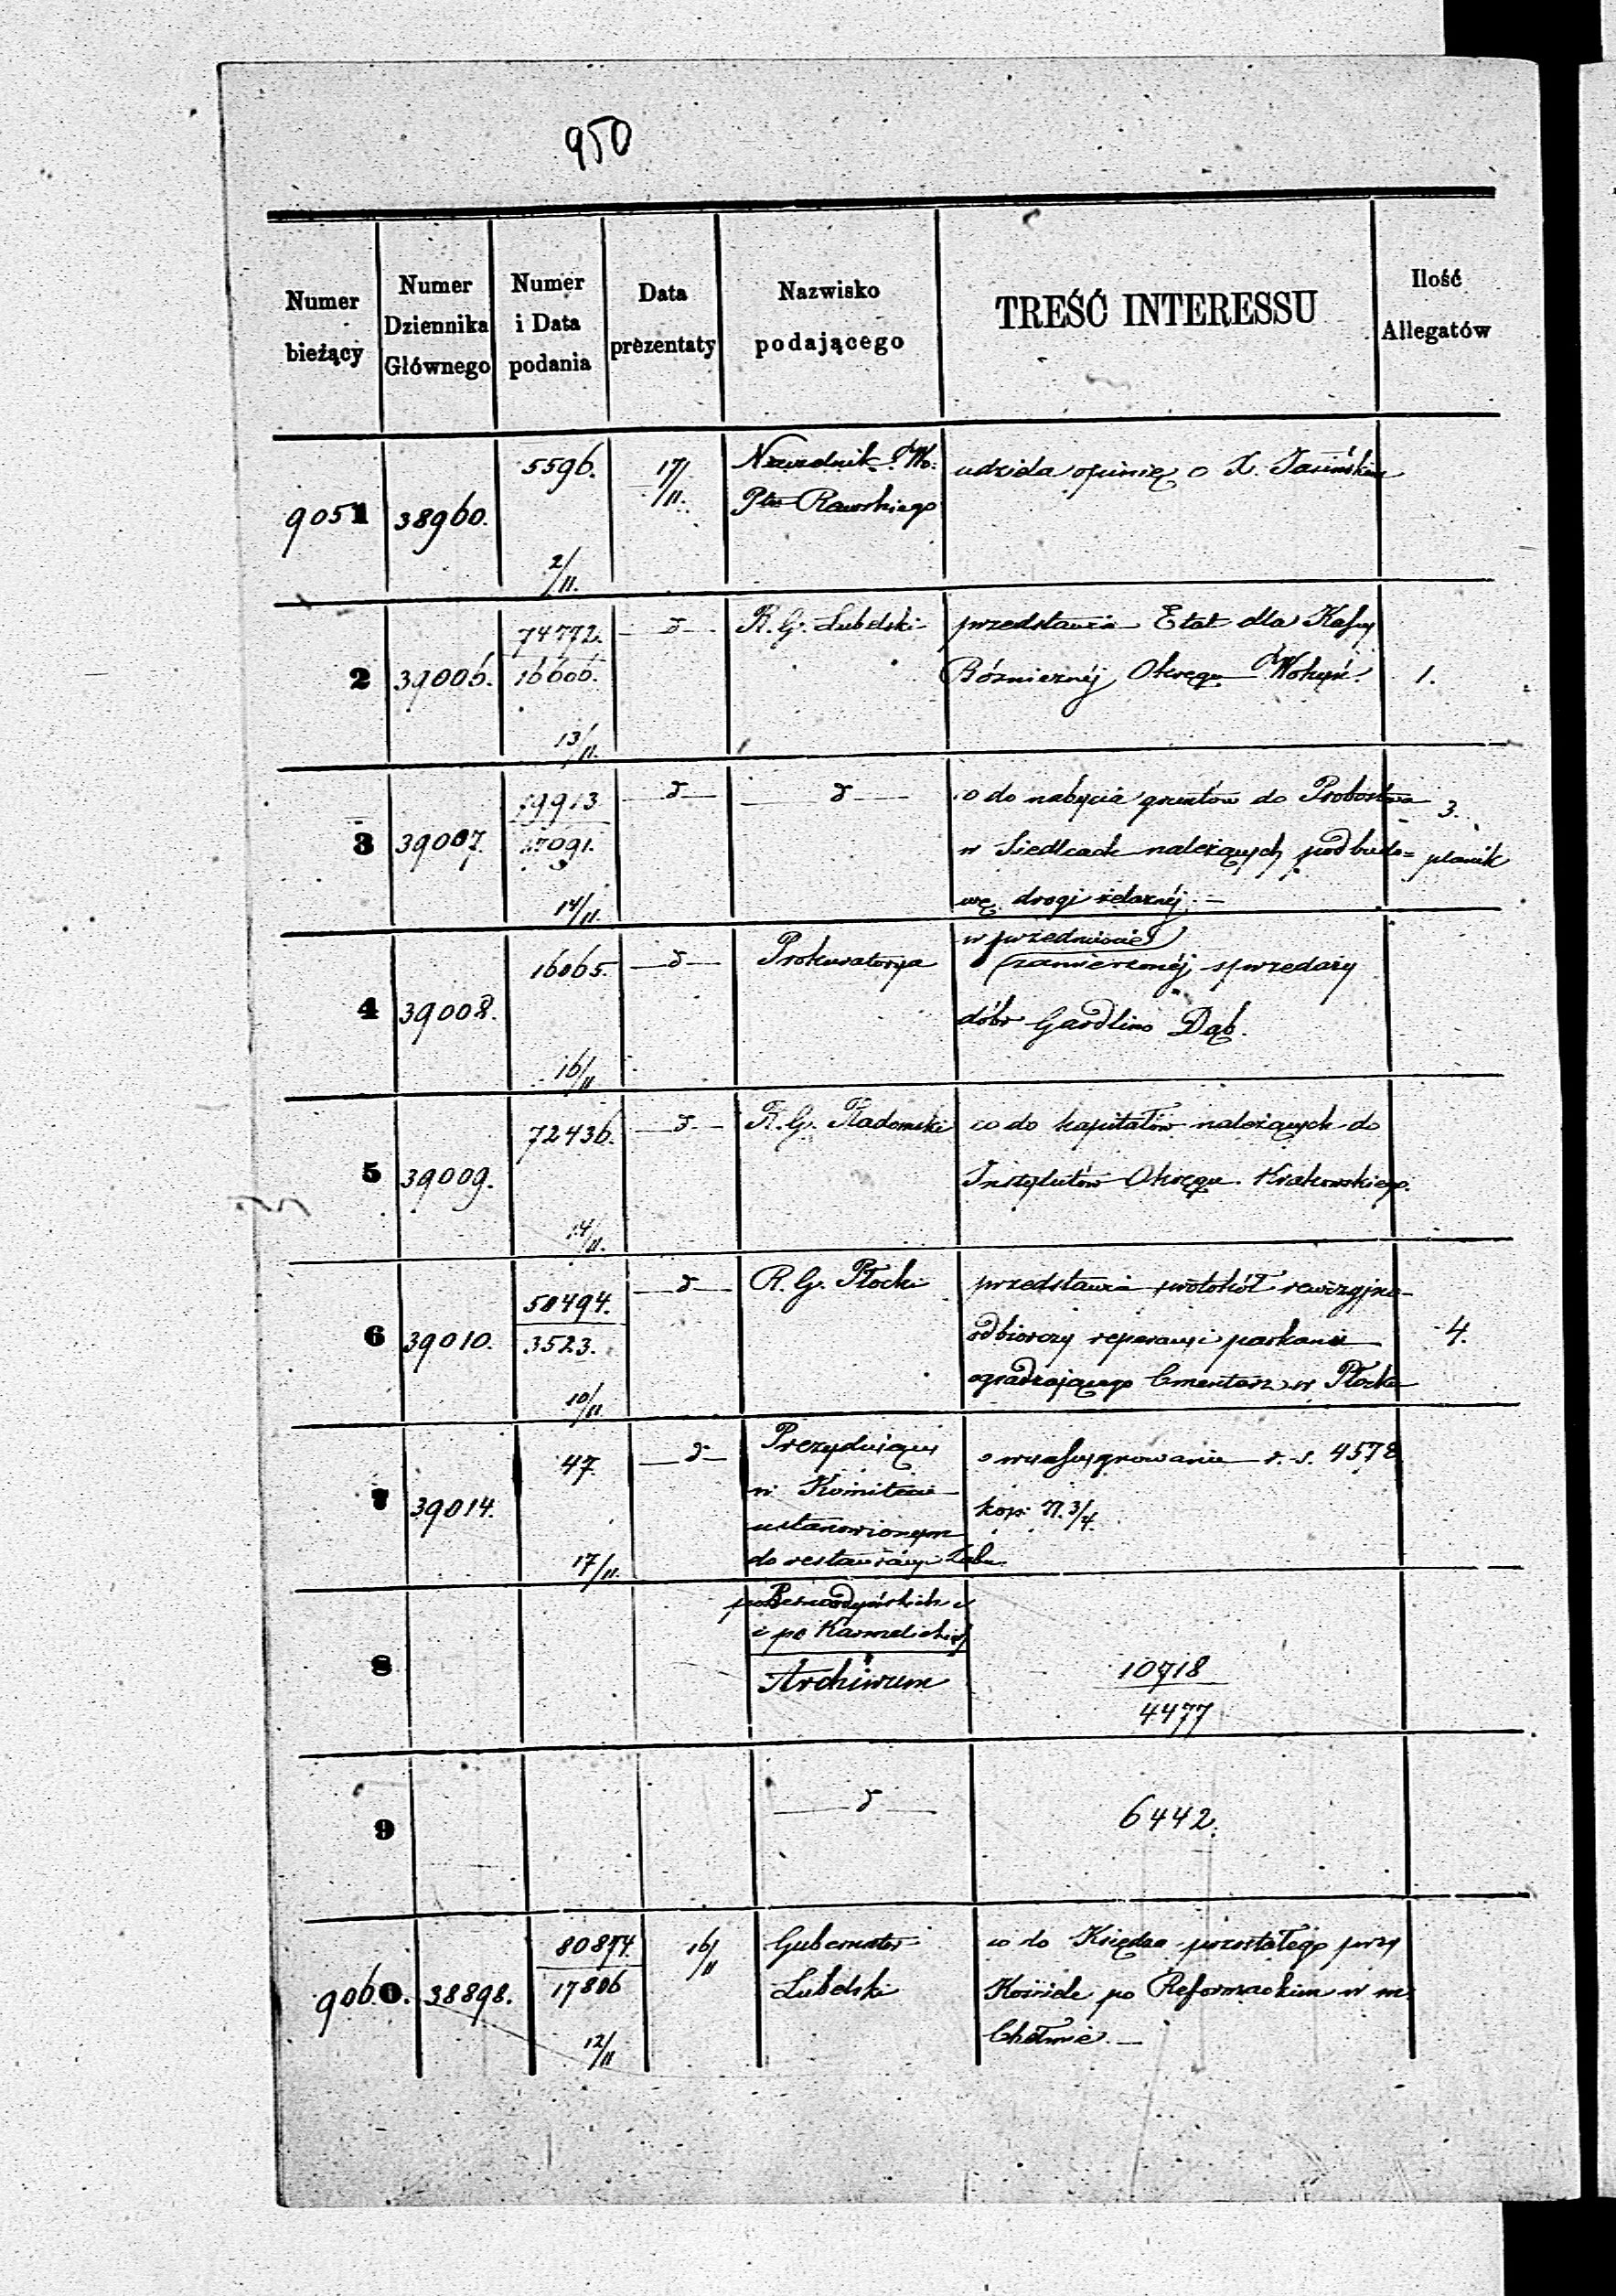 950
Numer bieżący
Numer Dziennika Głównego
Numer i Data podania
Data prezentaty
Nazwisko podającego
TREŚĆ INTERESSU
Ilość Allegatów
9051 38960. 5596. 17/11. Naczelnik Wo: udziela opinię o X. Jasińskim
Ptu Rawskiego
2/11.
2 39006. 74772. d R. G. Lubelski przedstawia Etat dla Kassy
16606. Bóżnicznéj Okręgu 1.
13/11.
3 39007. 19913 d d co do nabycia gruntów do Probostwa 3.
17091. w Siedlcach należących pod budo= planik
14/11. wę drogi żelaznéj. —
4 39008. 16065. d Prokuratorya w przedmiocie
zamierzonéj sprzedaży
dóbr Gardlino Dąb.
16/11
5 39009. 72436. d R. G. Radomski co do kapitałów należących do
Instytutów Okręgu Krakowskiego.
14/11.
6 39010. 50494. d R. G. Płocki przedstawia protokół rewizyjno-
3523. odbiorczy reperacyi parkanu 4.
10/11. ogradzającego Cmentarz w Płocku
7 39014. 47. d Prezydujący o wyassygnowanie r. s. 4578
w Komitecie kop. 71. 3/4.
ustanowionym
17/11. do restauracyi Zabu.
po Bernardyńskich
i po Karmelickich
8 Archiwum 10718
4477
9 d 6442.
9060. 38898. 80874. 16/11 Gubernator co do Księdza pozostałego przy
17806 Lubelski Kościele po Reformackim w m.
12/11 Chełmie. —